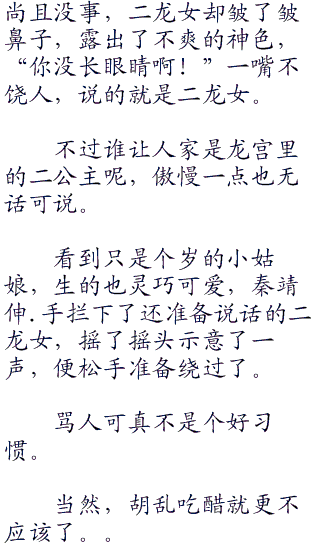 尚且没事，二龙女却皱了皱
鼻子，露出了不爽的神色，
“你没长眼睛啊！”一嘴不
饶人，说的就是二龙女。
不过谁让人家是龙宫里
的二公主呢，傲慢一点也无
话可说。
看到只是个岁的小姑
娘，生的也灵巧可爱，秦靖
伸.手拦下了还准备说话的二
龙女，摇了摇头示意了一
声，便松手准备绕过了。
骂人可真不是个好习
惯。
当然，胡乱吃醋就更不
应该了。。